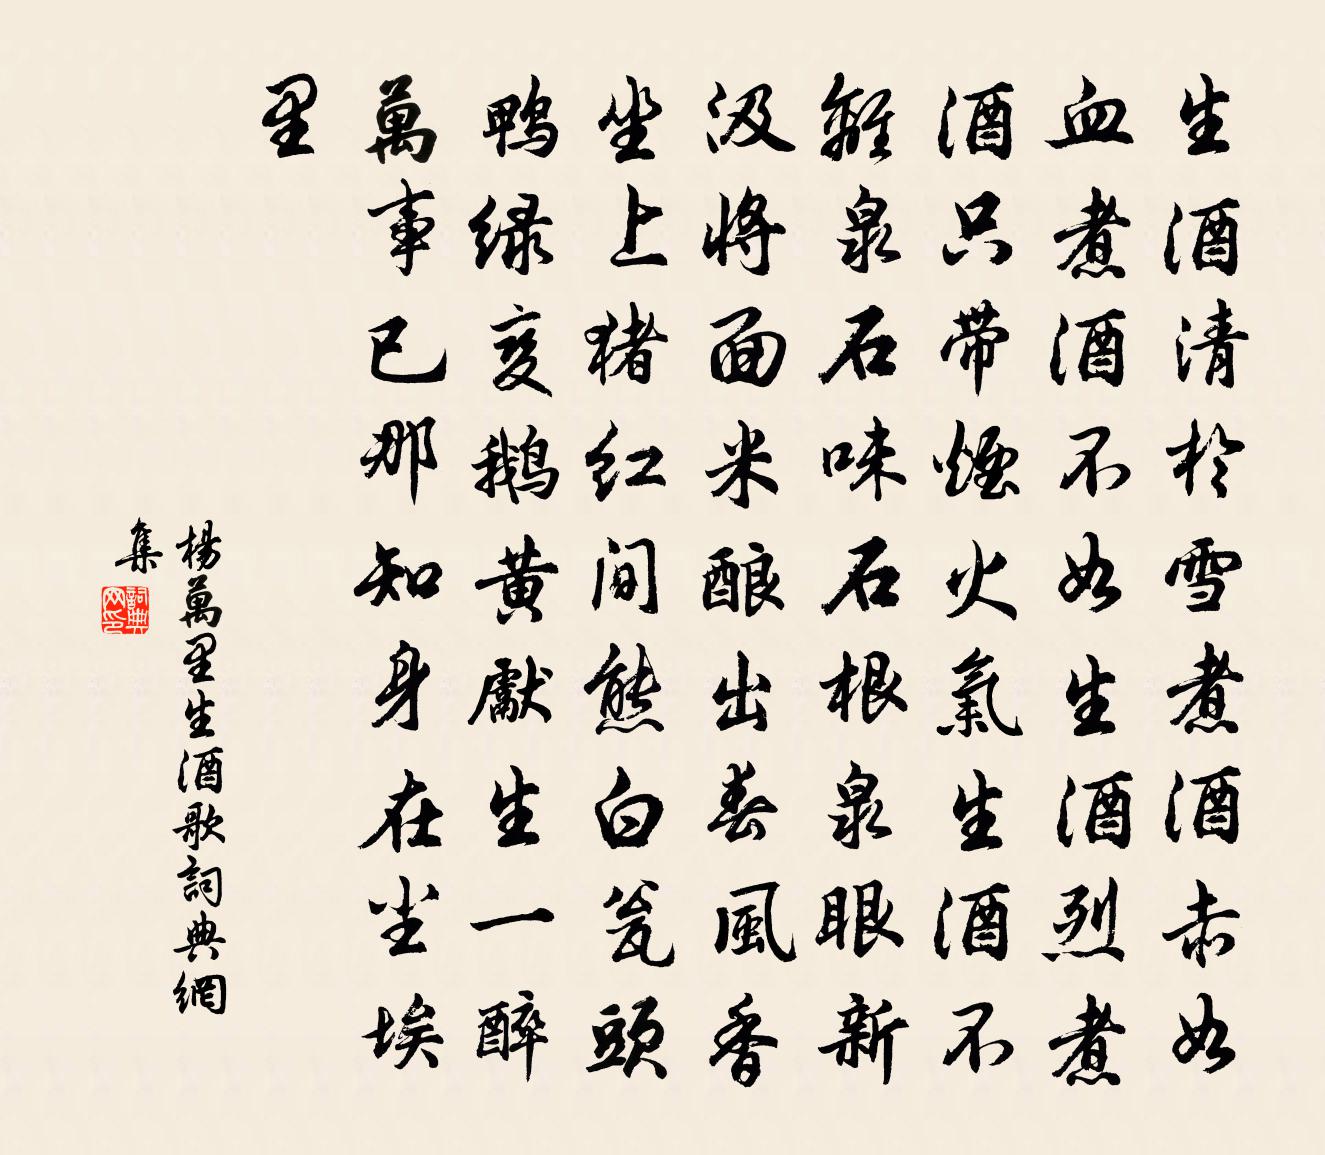 生酒清於雪煮酒赤如
血煮酒不如生酒烈煮
酒只带煙火氣生酒不
離泉石味石根泉眼新
汲将面米酿出春風香
坐上猪红间熊白瓮頭
鸭绿变鹅黄獻生一醉
萬事已那知身在尘埃
里
楊萬里生酒歌詞典網
集
詞典网印